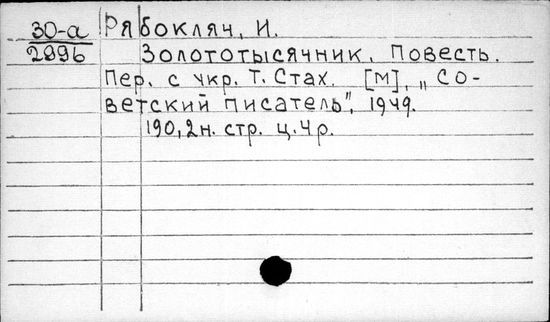 30-а Рябокляч, И.
2996 Золототысячник. Повесть.
Пер. с укр. Т. Стах. [М], „Со-
ветский писатель", 1949.
190,2н. стр. ц.4р.